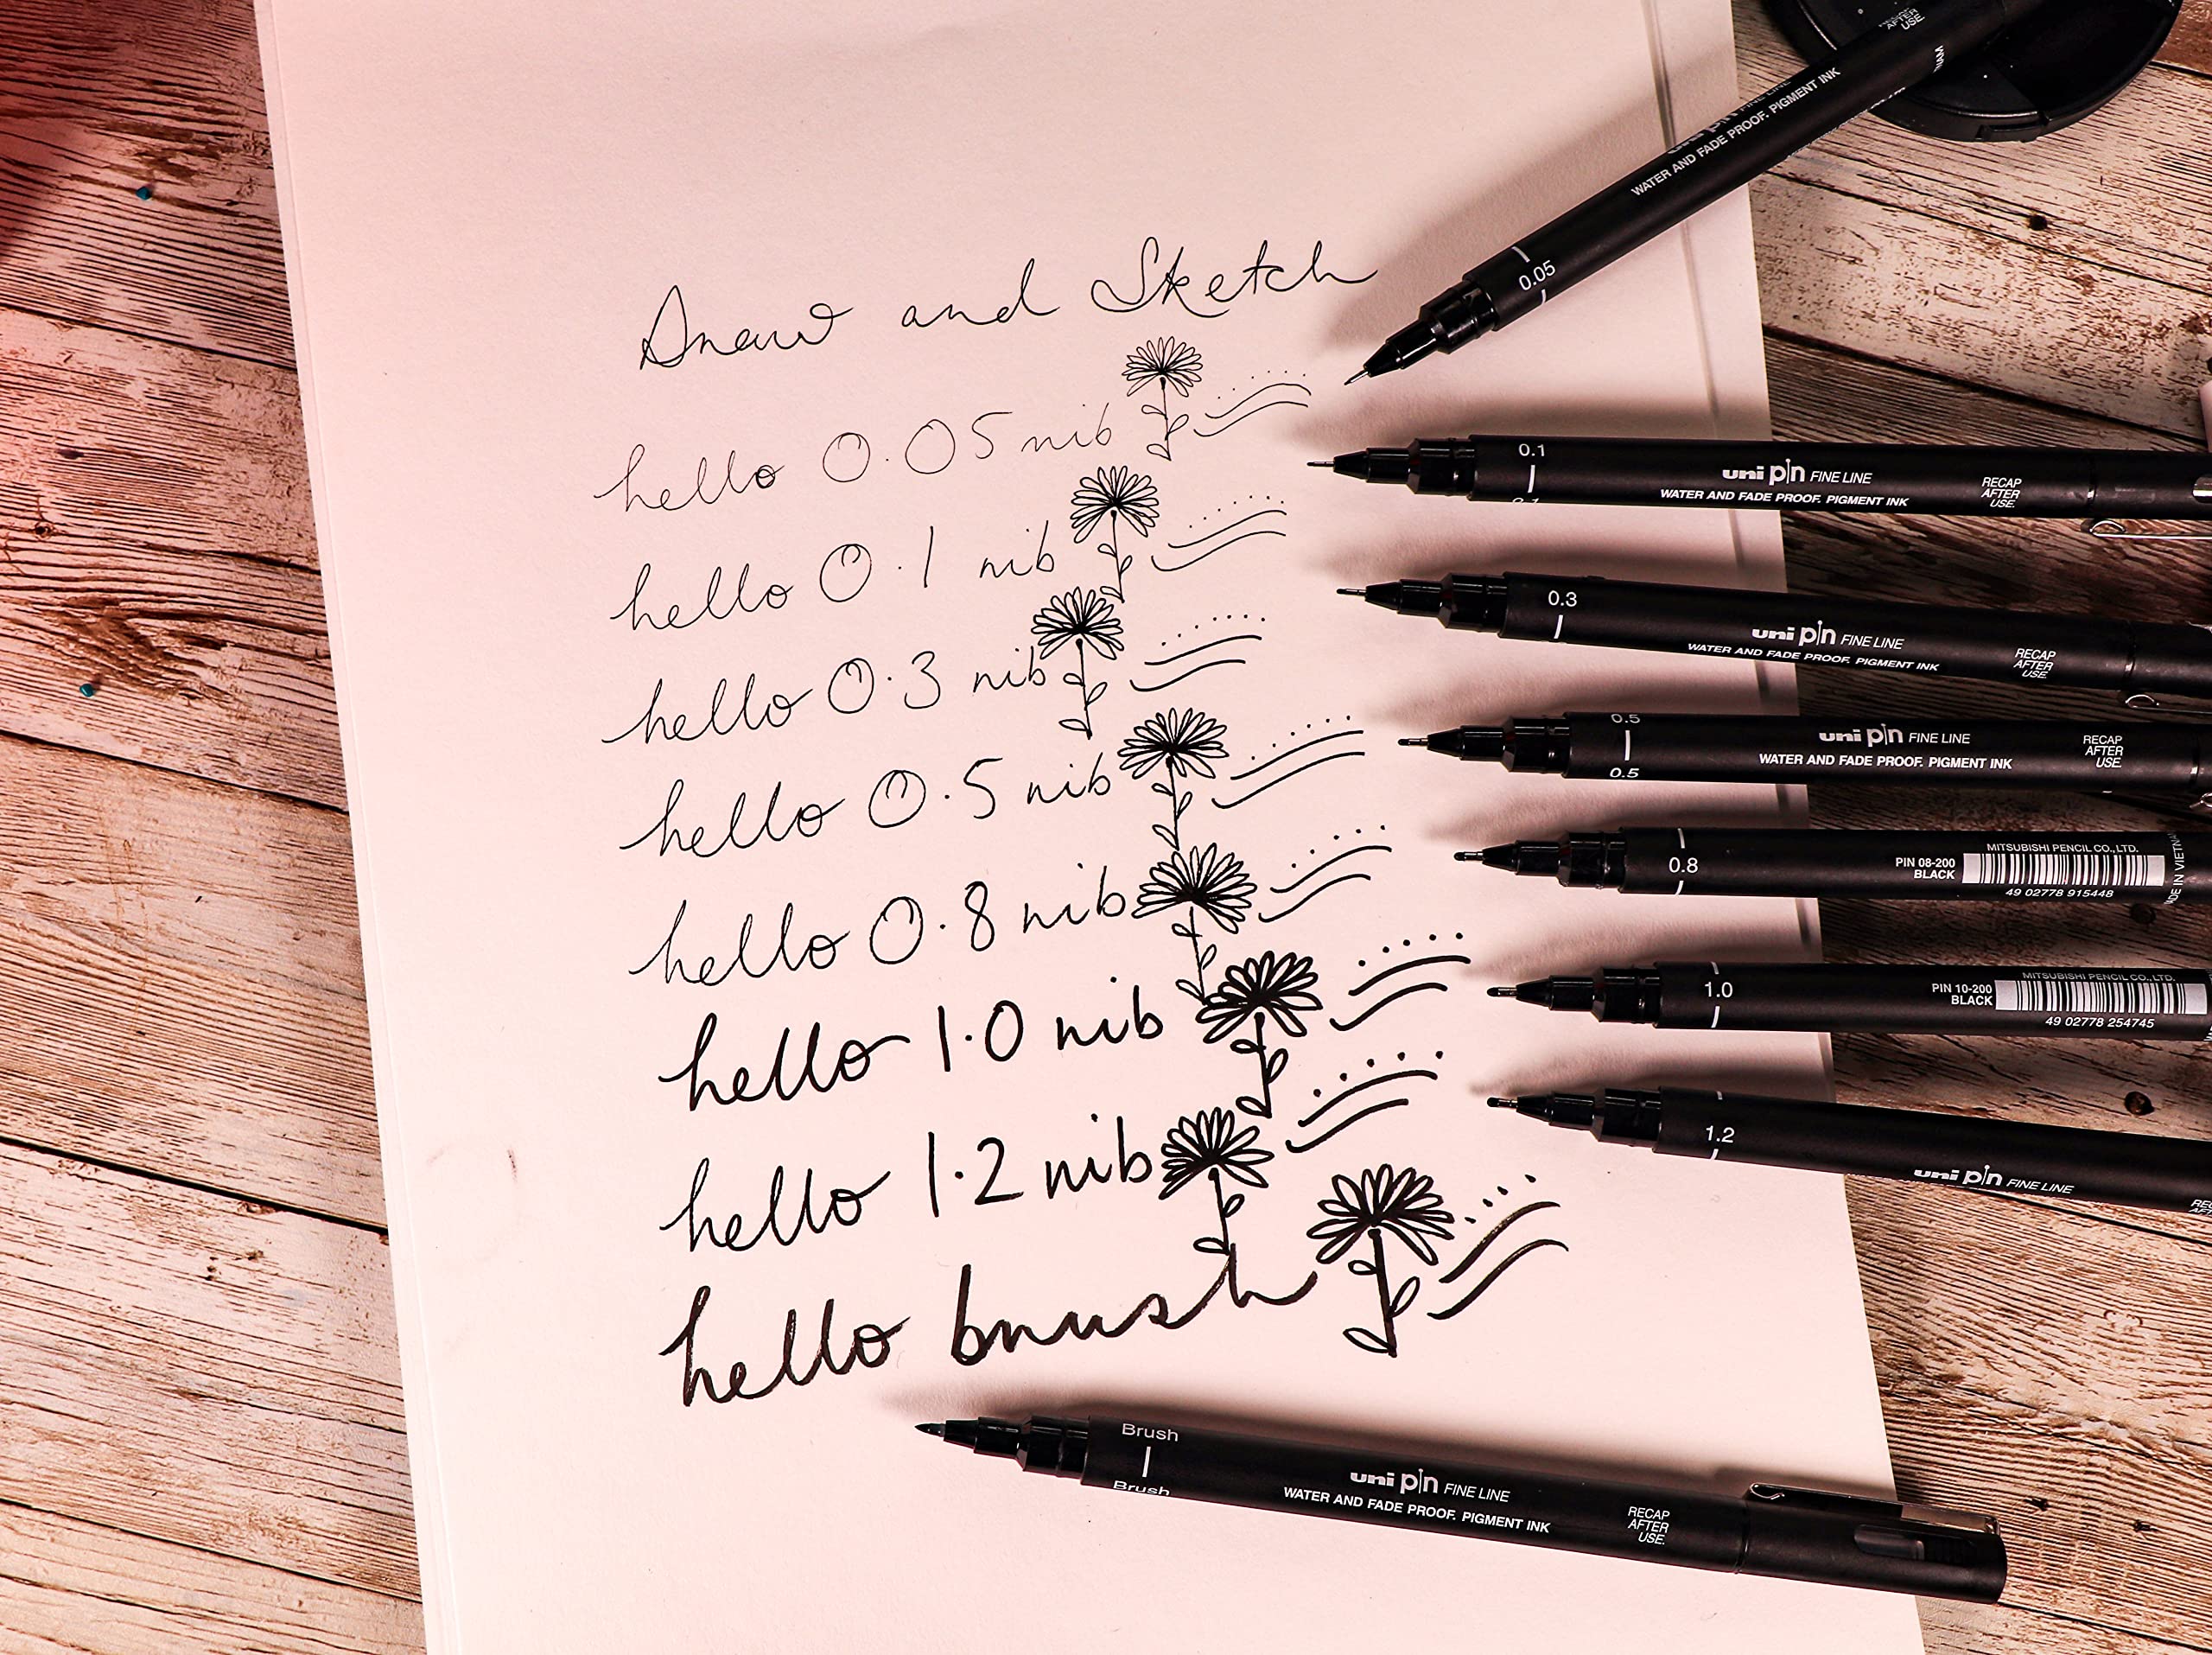 Draw and Sketch
hello 0.05 nib
hello 0.1 nib
hello 0.3 nib
hello 0.5 nib
hello 0.8 nib
hello 1.0 nib
hello 1.2 nib
hello brush
RECAP
AFTER
USE.
uni pin FINE LINE
WATER AND FADE PROOF. PIGMENT INK
0.05
0.1
0.1
uni pin FINE LINE
WATER AND FADE PROOF. PIGMENT INK
RECAP
AFTER
USE.
0.3
uni pin FINE LINE
WATER AND FADE PROOF. PIGMENT INK
RECAP
AFTER
USE.
0.5
0.5
uni pin FINE LINE
WATER AND FADE PROOF. PIGMENT INK
RECAP
AFTER
USE.
0.8
PIN 08-200
BLACK
MITSUBISHI PENCIL CO.,LTD.
49 02778 915448
MADE IN VIETNAM
1.0
PIN 10-200
BLACK
MITSUBISHI PENCIL CO.,LTD.
49 02778 254745
1.2
uni pin FINE LINE
Brush
Brush
uni pin FINE LINE
WATER AND FADE PROOF. PIGMENT INK
RECAP
AFTER
USE.